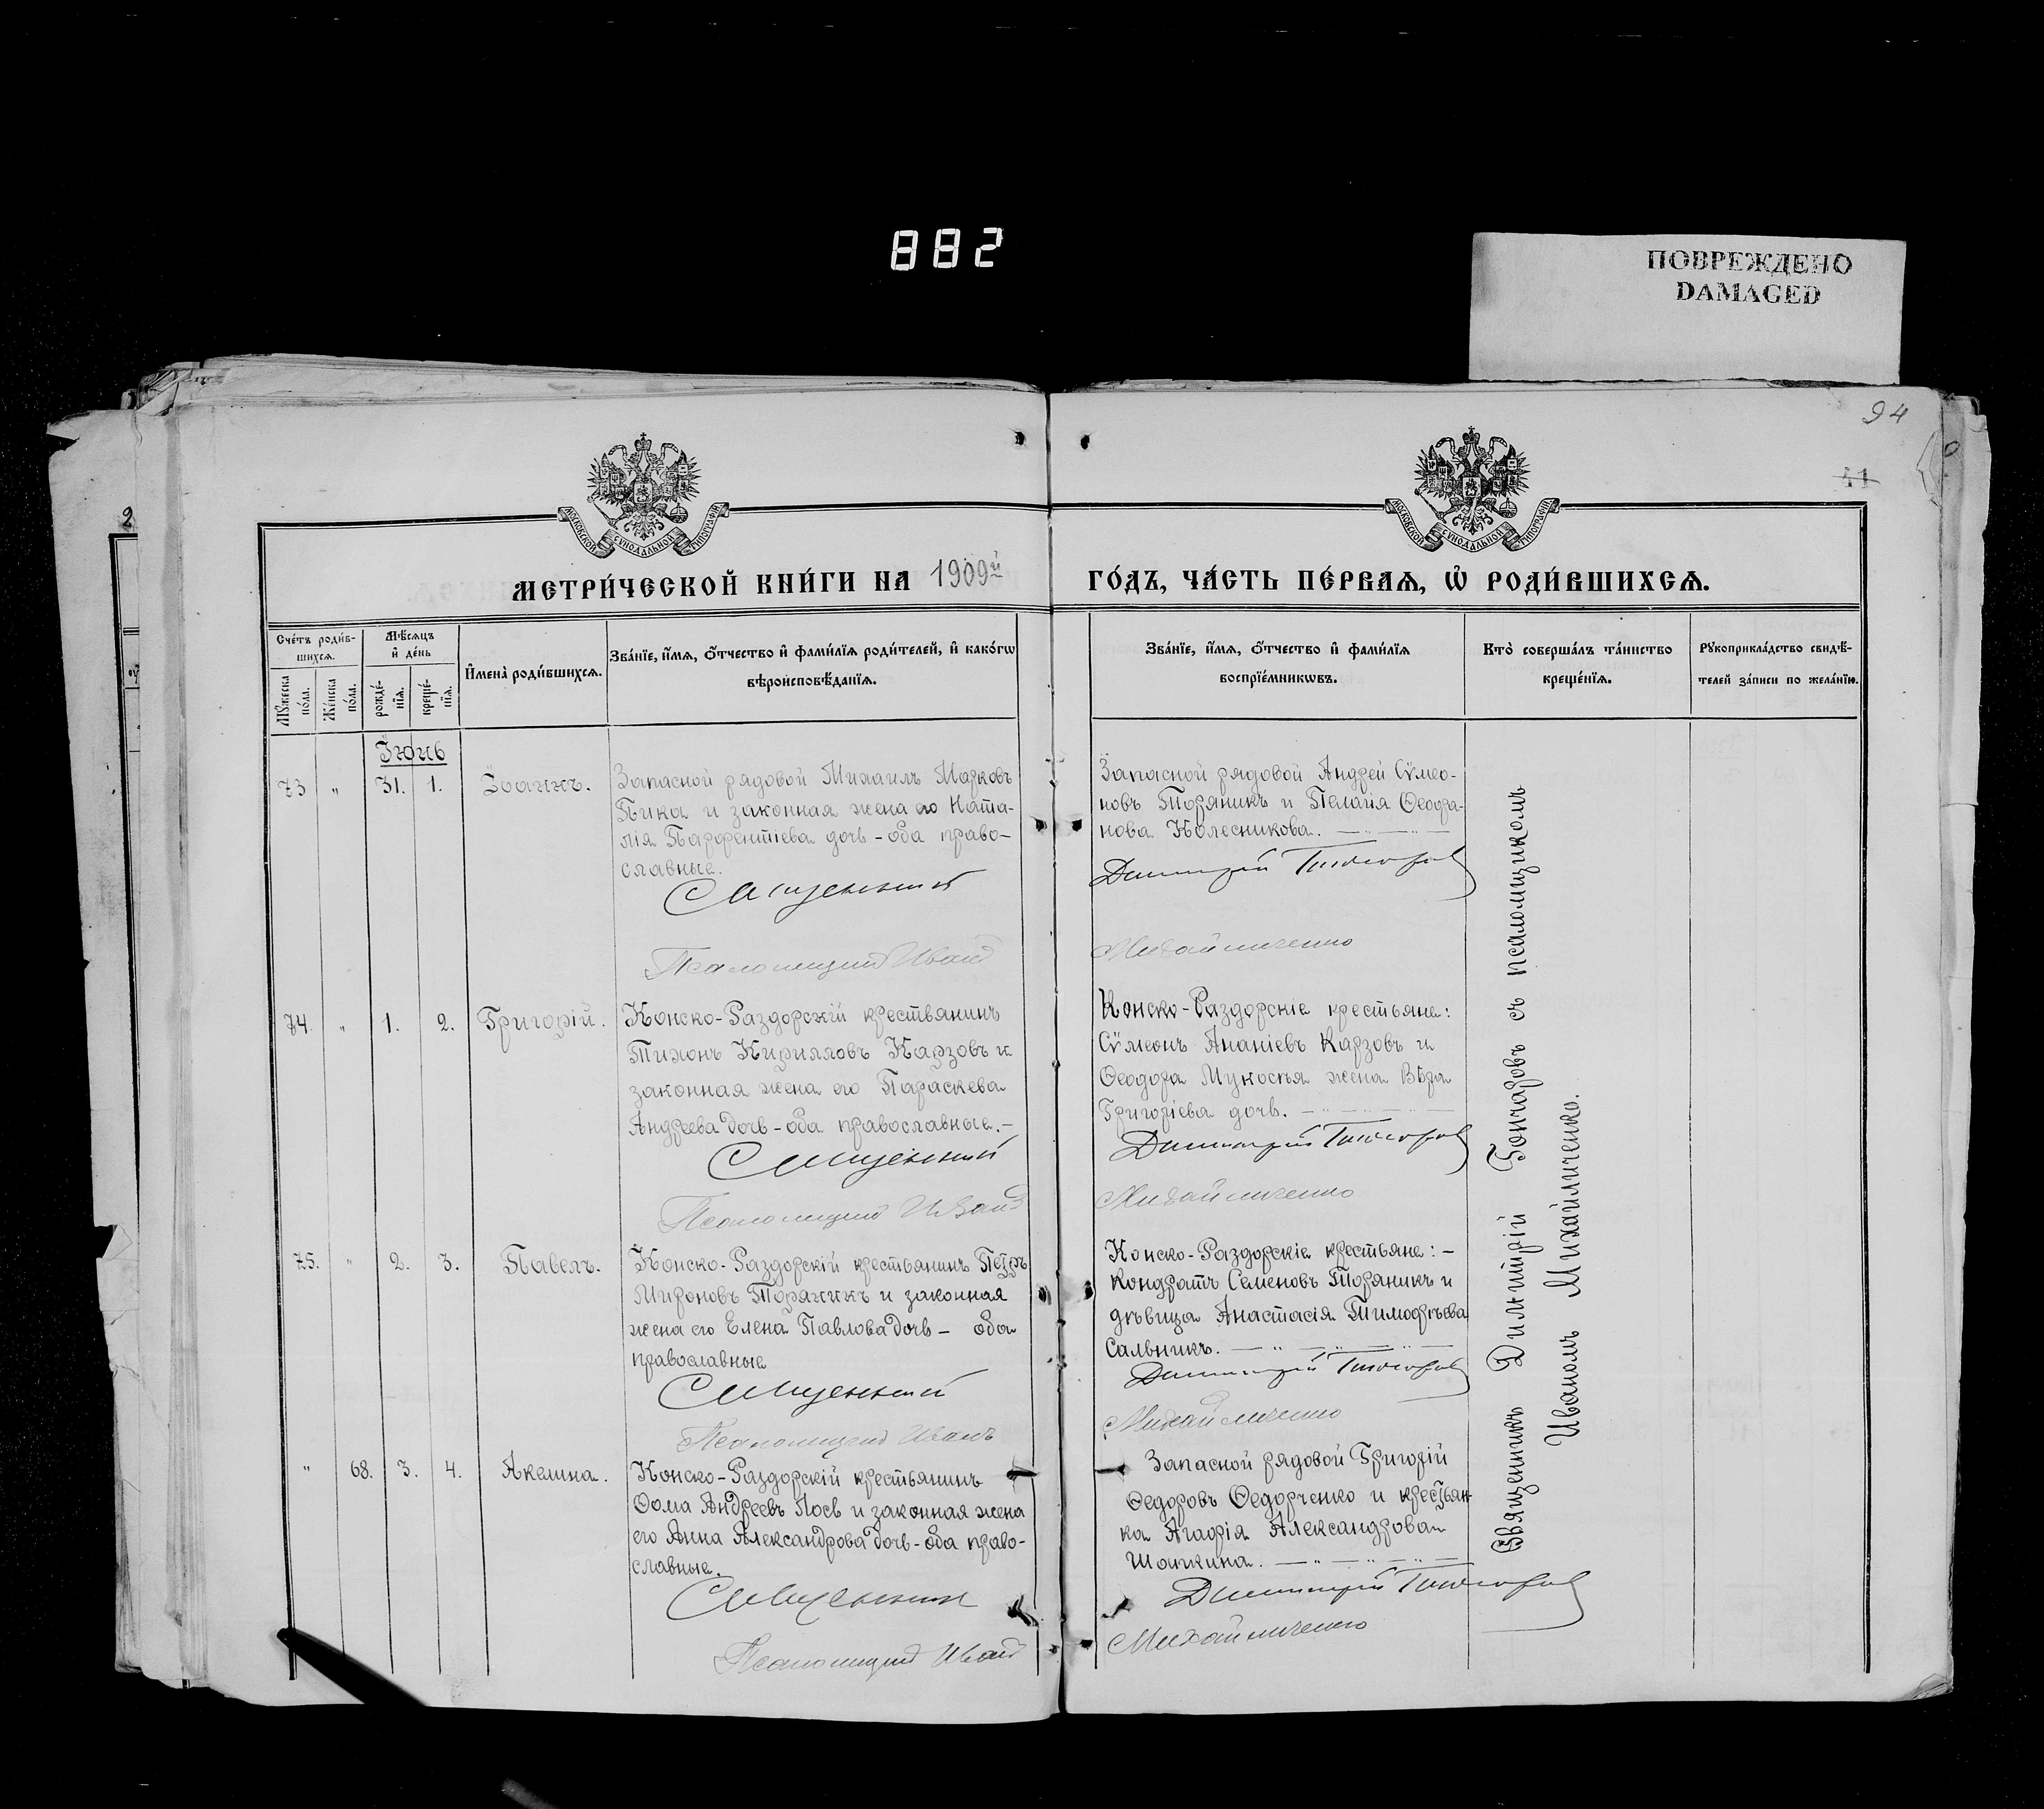 882
ПОВРЕЖДЕНО
DAMAGED
94
41
2
МОСКОВСКОЙ СѴНОДАЛЬНОЙ ТИПОГРАФІИ
МОСКОВСКОЙ СѴНОДАЛЬНОЙ ТИПОГРАФІИ
МЕТРИ́ЧЕСКОЙ КНИ́ГИ НА 1909й
ГО́ДЪ, ЧА́СТЬ ПЕ́РВАѦ, Ѡ҆ РОДИ́ВШИХСѦ.
Сче́тъ роди́в-
шихсѧ.
Мꙋ́жеска по́ла.
Же́нска по́ла.
Мѣ́сѧцъ
и҆ де́нь
рожде́-
нїѧ.
креще́-
нїѧ.
И҆мена̀ роди́вшихсѧ.
Зва́нїе, и҆́мѧ, ѻ҆́тчество и҆ фами́лїѧ роди́телей, и҆ како́гѡ
вѣроисповѣ́данїѧ.
Зва́нїе, и҆́мѧ, ѻ҆́тчество и҆ фами́лїѧ
воспрїе́мникѡвъ.
Кто̀ соверша́лъ та́инство
креще́нїѧ.
Рꙋкоприкла́дство свидѣ́-
телей за́писи по жела́нїю.
Іюнь
73 " 31. 1. Іоаннъ.
Запасной рядовой Михаилъ Марковъ
Пика и законная жена его Ната-
лія Парфентіева дочь - оба право-
славные.
Священникъ
Псаломщикъ Иванъ
Запасной рядовой Андрей Сѵмео-
новъ Торяникъ и Пелагія Ѳеофа-
нова Колесникова. — " — " —
Димитрій Гончаровъ
Михайличенко
74. " 1. 2. Григорій.
Конско-Раздорскій крестьянинъ
Тихонъ Кирилловъ Карзовъ и
законная жена его Параскева
Андреева дочь - оба православные. -
Священникъ
Псаломщикъ Иванъ
Конско-Раздорскіе крестьяне:
Сѵмеонъ Ананіевъ Карзовъ и
Ѳеодора жена Вѣра
Григоріева дочь. — " — " — " —
Димитрій Гончаровъ
Михайличенко
75. " 2. 3. Павелъ.
Конско-Раздорскій крестьянинъ Петръ
Мироновъ Торяникъ и законная
жена его Елена Павлова дочь - оба
православные
Священникъ
Псаломщикъ Иванъ
Конско-Раздорскіе крестьяне: -
Кондратъ Семеновъ Торяникъ и
дѣвица Анастасія Тимофѣева
Сальникъ. — " — " — " —
Димитрій Гончаровъ
Михайличенко
" 68. 3. 4. Акелина.
Конско-Раздорскій крестьянинъ
Ѳома Андреевъ Лось и законная жена
его Анна Александрова дочь - оба право-
славные.
Священникъ
Псаломщикъ Иванъ
Запасной рядовой Григорій
Ѳедоровъ Ѳедорченко и крестьян-
ка Агафія Александрова
— " — " — " —
Димитрій Гончаровъ
Михайличенко
Священникъ Димитрій Гончаровъ съ псаломщикомъ
Иваномъ Михайличенко.